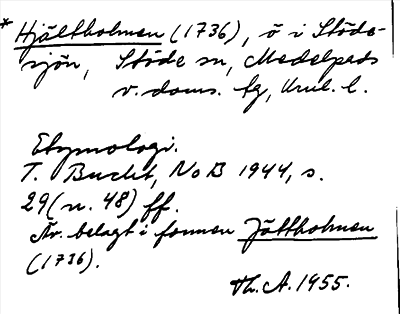 * Hjältholmen (1736), ö i Stöde-
sjön, Stöde sn, Medelpads
v. doms. fg, Vnrl. l.
Etymologi.
T. Bucht, NoB 1944, s.
29 (n. 48) ff.
Är belagt i formen Jältholmen
(1736).
Th. A. 1955.